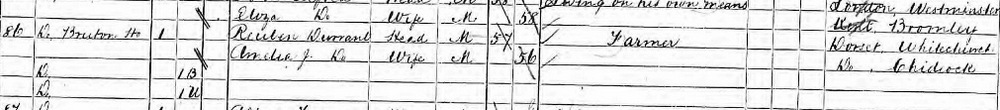 Eliza Do Wife M 58 Living on his own means London Westminster
86 Do Bruton Ho 1 Reuben Durrant Head M 57 Farmer Bromley
Amelia J. Do Wife M 56 Dorset, Whitechurch
Do 1B Do, Chideock
Do 1U